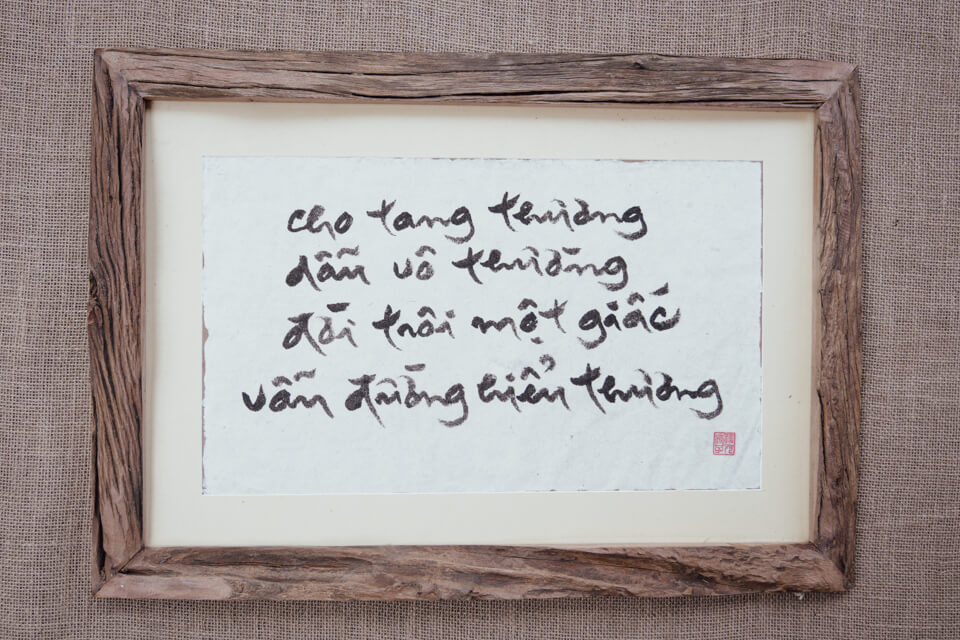 cho tang thương
dẫu vô thường
đời trôi một giấc
vẫn đường hiểu thương